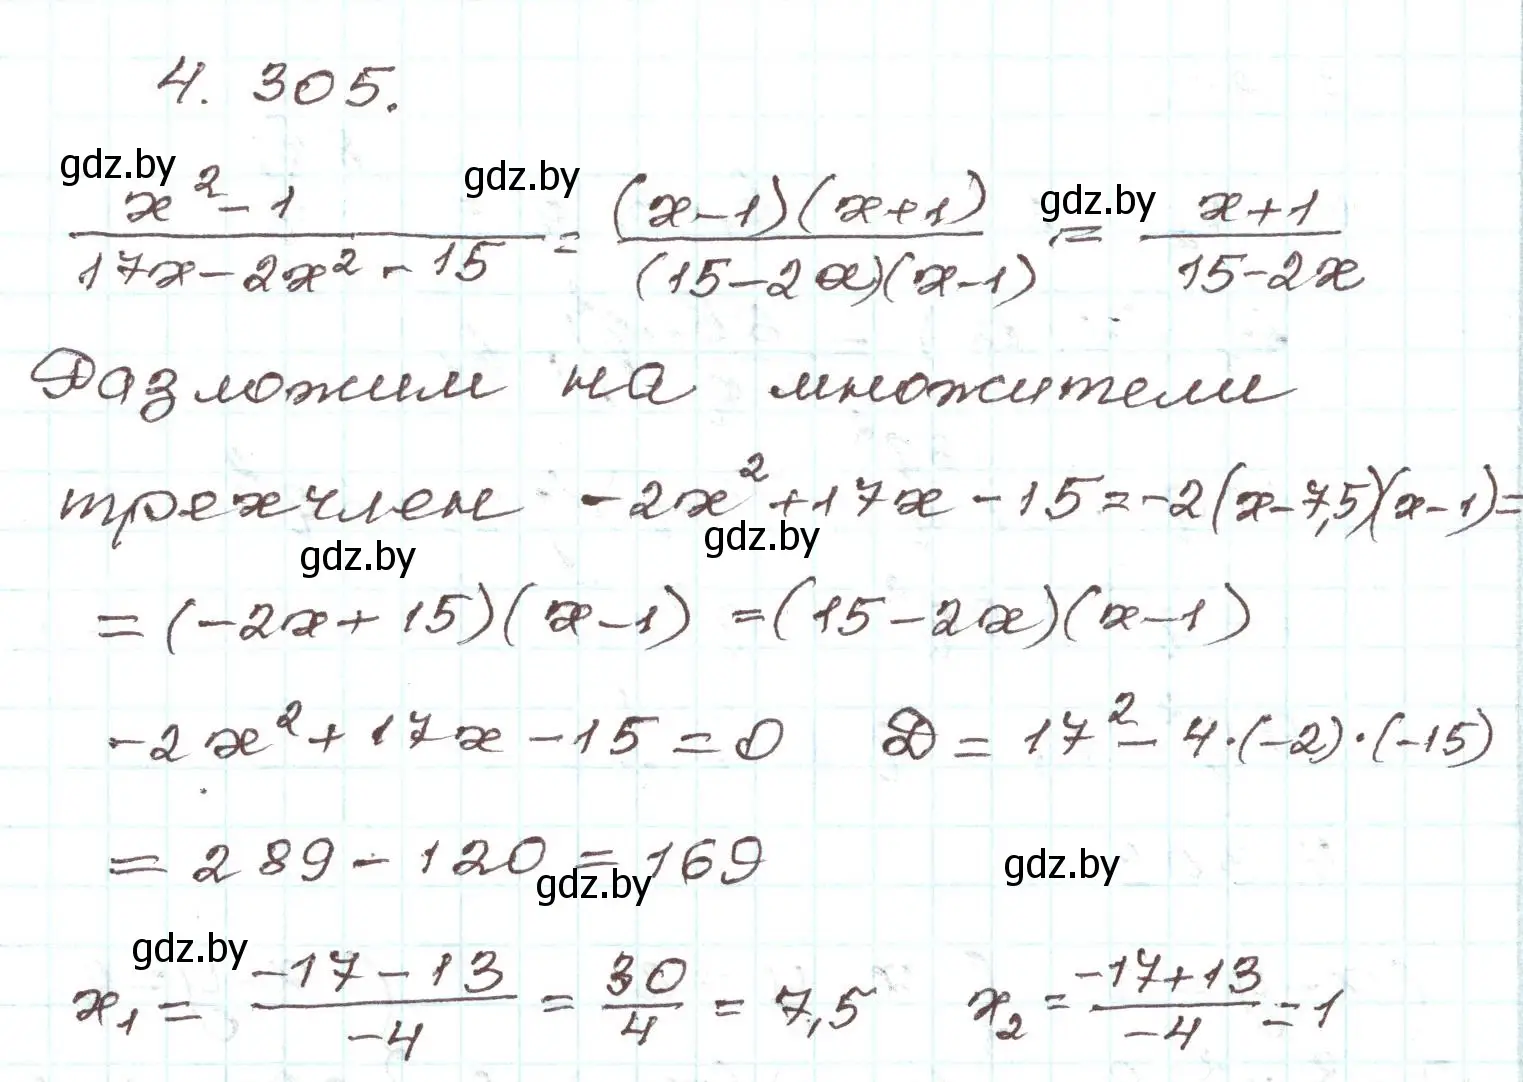 4. 305.
gdz.by gdz.by gdz.by
(x² - 1)/(17x - 2x² - 15) = ((x-1)(x+1))/((15-2x)(x-1)) = (x+1)/(15-2x)
Разложим на множители
трехчлен -2x² + 17x - 15 = -2(x-7,5)(x-1) =
gdz.by gdz.by
= (-2x + 15)(x-1) = (15 - 2x)(x-1)
-2x² + 17x - 15 = 0 D = 17² - 4·(-2)·(-15)
= 289 - 120 = 169
gdz.by gdz.by
gdz.by
x₁ = (-17-13)/(-4) = 30/4 = 7,5 x₂ = (-17+13)/(-4) = 1